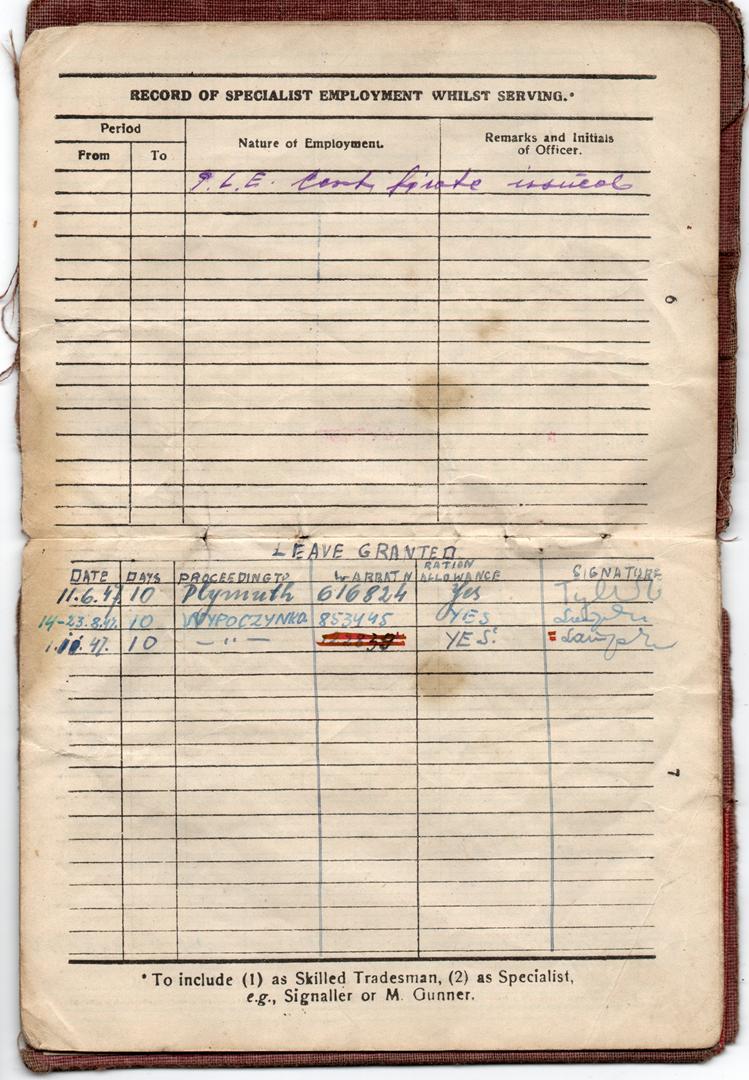 RECORD OF SPECIALIST EMPLOYMENT WHILST SERVING.*
Period
From To Nature of Employment. Remarks and Initials of Officer.
P.L.E. Certificate issued
6
LEAVE GRANTED
DATE DAYS PROCEEDING TO WARRAT N RATION ALLOWANCE SIGNATURE
11.6.47. 10 Plymuth 616824 Yes
14-23.8.47. 10 WYPOCZYNKO. 853445 YES
47. 10 — " — YES.
7
* To include (1) as Skilled Tradesman, (2) as Specialist,
e.g., Signaller or M. Gunner.